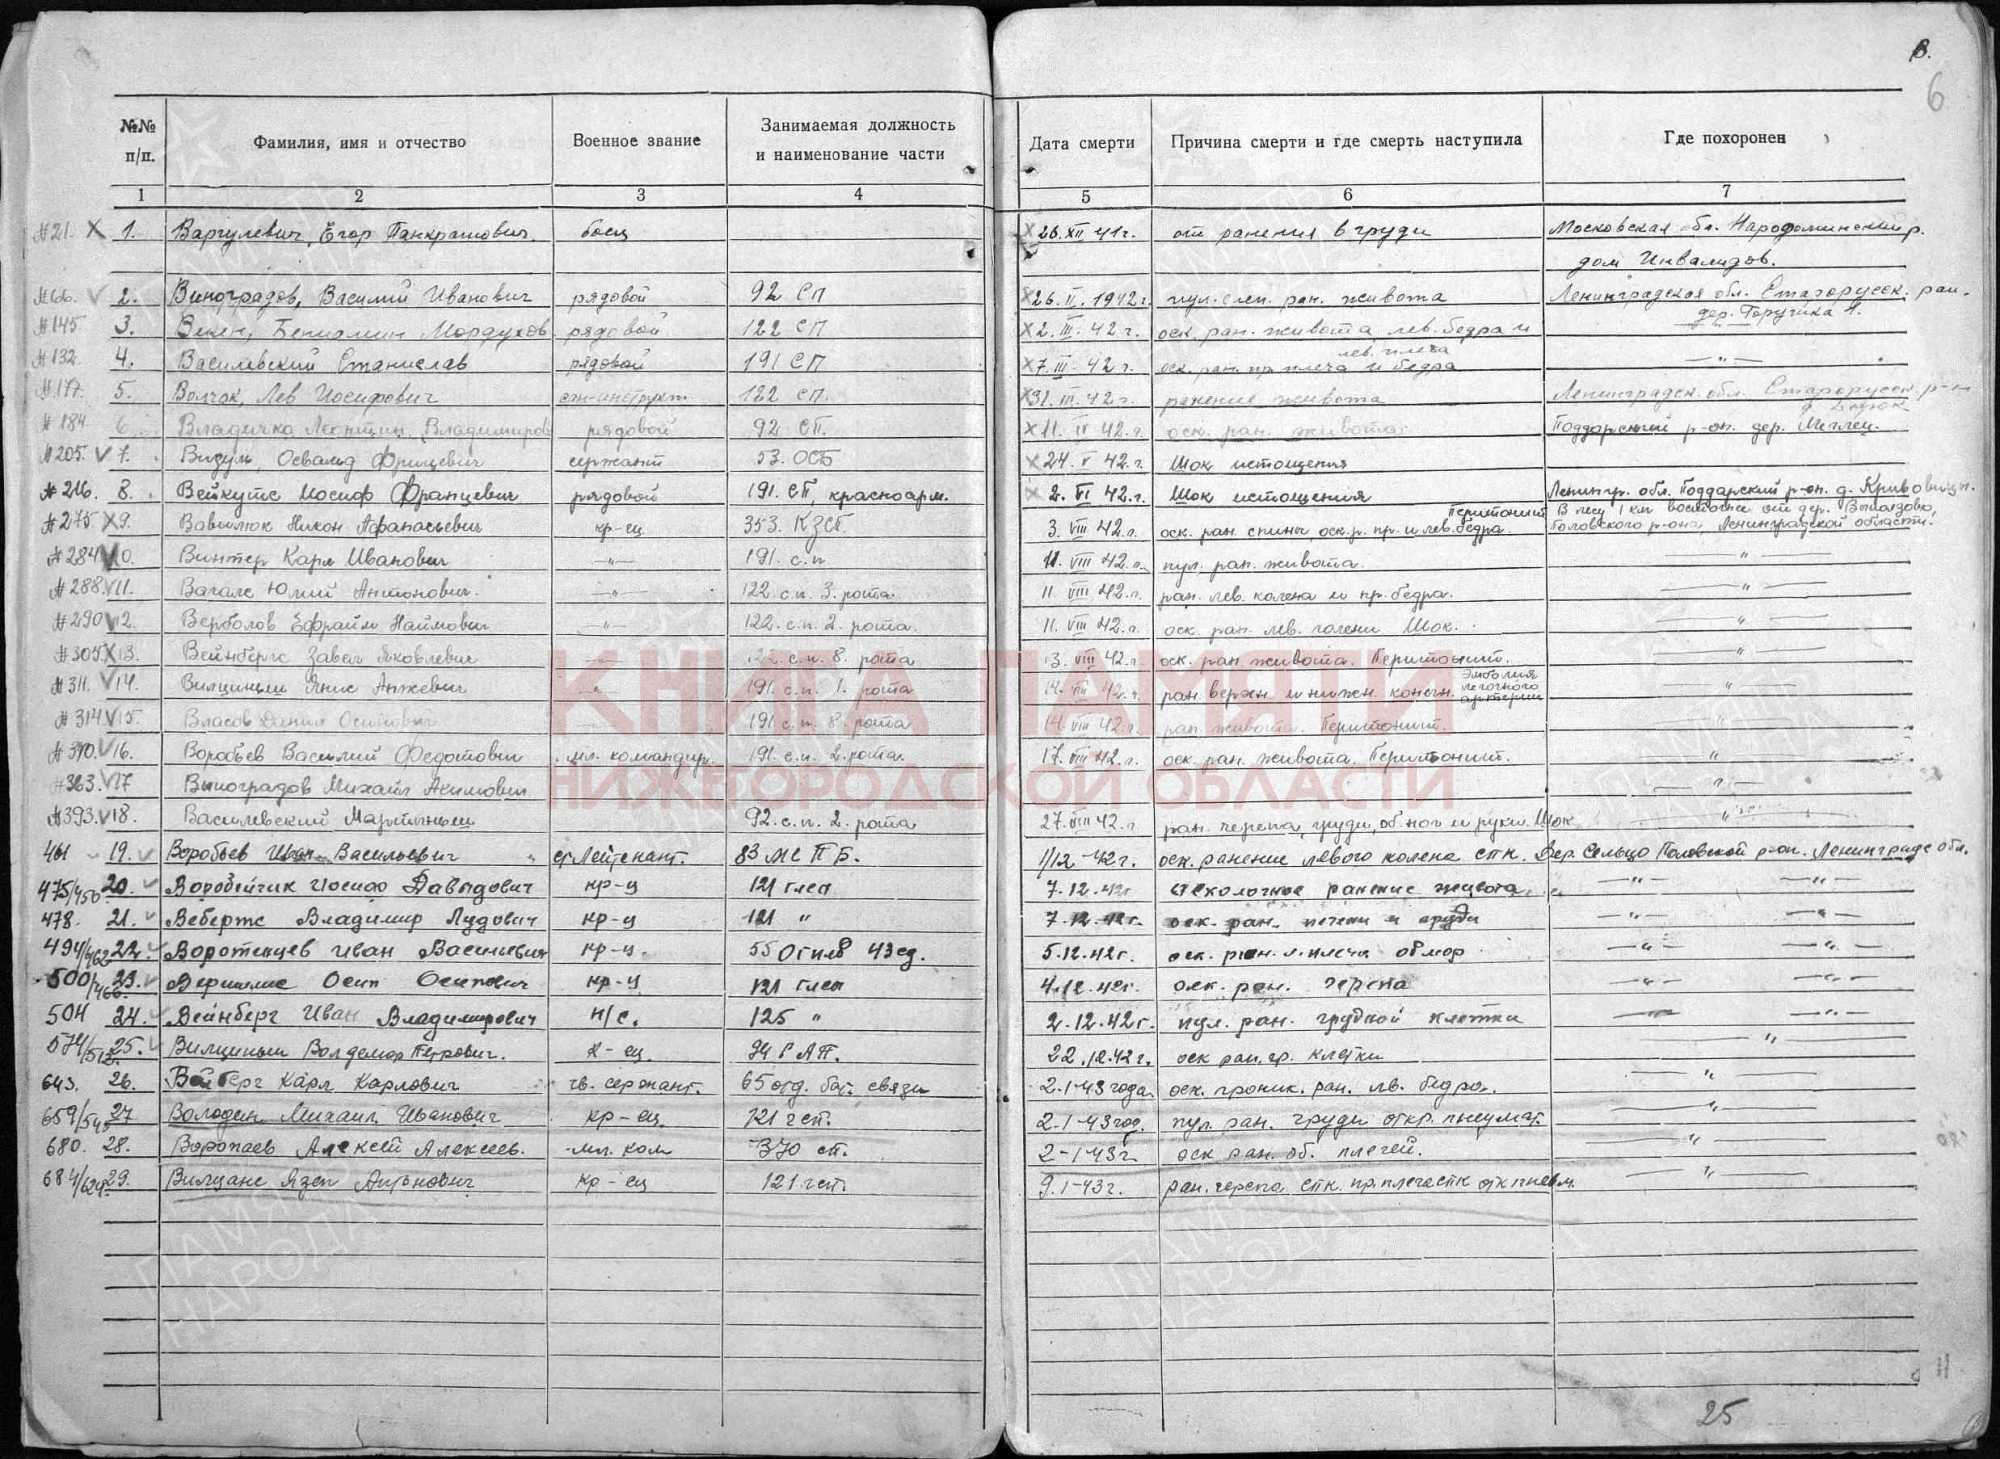 В.
6
№№ п/п. Фамилия, имя и отчество Военное звание Занимаемая должность и наименование части Дата смерти Причина смерти и где смерть наступила Где похоронен
1 2 3 4 5 6 7
№21. X 1. Варгулевич, Егор Панкратович. боец X 26.XII 41г. от ранения в груди Московская обл. Народоминский р.
дом Инвалидов.
№66. V 2. Виноградов, Василий Иванович рядовой 92 СП X 26.II.1942г. ран. живота Ленинградская обл. Старорусск. рай.
дер. Горушка
№145. 3. Бениамин Мордухов. рядовой 122 СП X 2.III.42г. оск. ран. живота, лев. бедра и
лев. плеча
№132. 4. Василевский Станислав рядовой 191 СП X 7.III.42г. оск. ран. пр. плеча и бедра —"—
№177. 5. Волчок, Лев Иосифович 122 СП. X 31.III.42г. ранение живота Ленинградск. обл. Старорусск. р-н
№184 6. Владичко Владимиров рядовой 92 СП. X 11.IV 42.г. оск. ран. живота. Поддорский р-он. дер.
№205. V 7. Визуль, Освальд Фрицевич сержант 53. ОСБ X 24.V 42.г. Шок истощения
№216. 8. Вейкутс Иосиф Францевич рядовой 191. СП, красноарм. X 2.VI 42.г. Шок истощения Ленингр. обл. Поддорский р-он. д.
Перитонит В лесу 1 км восточнее от дер.
№275 X 9. Вавилюк Никон Афанасьевич кр-ец. 353. КЗСП. 3.VIII 42.г. оск. ран. спины оск. р. пр. и лев. бедра. р-она, Ленинградской области.
№284 10. Винтер Карл Иванович —"— 191. с.п. 11.VIII 42.г. пул. ран. живота. —"—
№288. V 11. Вагалс Юлий Антонович. —"— 122. с.п. 3. рота. 11.VIII 42.г. ран. лев. колена и пр. бедра. —"—
№290 V 12. Верболов Ефраим Наймович —"— 122. с.п. 2. рота. 11.VIII 42.г. оск. ран. лев. голени Шок. —"—
№305. X 13. Вейнбергс Завел Яковлевич —"— 122. с.п. 8. рота 13.VIII 42.г. оск. ран. живота. Перитонит. —"—
Эмболия
№311. V 14. Вилциньш Янис Анжевич —"— 191. с.п. 1. рота 14.VIII 42.г. ран. верхн. и нижн. конечн. легочного артерии —"—
№314. V 15. Власов Данил Осипович —"— 191. с.п. 8. рота 14.VIII 42.г. ран. живота. Перитонит. —"—
КНИГА ПАМЯТИ
№340. V 16. Воробьев Василий Федотович мл. командир. 191. с.п. 2. рота. 17.VIII 42.г. оск. ран. живота. Перитонит. —"—
НИЖЕГОРОДСКОЙ ОБЛАСТИ
№363. V 17 Виноградов Михаил Акимович —"—
№393. V 18. Василевский Мартыньш 92. с.п. 2. рота 27.VIII 42.г. ран. черепа, груди, об. ног и руки. Шок —"—
461 19. Воробьев Иван Васильевич ст. Лейтенант. 83 МСПБ. 1/12-42г. оск. ранение левого колена стк. Дер. Сельцо р-он. Ленинградс обл.
475/450 20. Воробейчик Иосиф Давыдович кр-ц 121 глсп 7.12.42г осколочное ранение живота —"— —"—
478. 21. Вебертс Владимир Лудович кр-ц 121 " 7.12.42г. оск. ран. печени и груди —"— —"—
494/462 22. Воротынцев Иван Васильевич кр-ц. 43сд. 5.12.42г. оск. ран. л. плеча —"— —"—
500/466 23. Осип Осипович кр-ц 121 глсп 4.12.42г. оск. ран. черепа —"— —"—
504 24. Вейнберг Иван Владимирович н/с. 125 " 2.12.42г. пул. ран. грудной клетки —"— —"—
25. Вилциньш Волдемар Петрович. к-ец. 94 РАП. 22.12.42г. оск ран. гр. клетки —"—
643. 26. Вейберг Карл Карлович гв. сержант. 65 отд. бат. связи 2-1-43 года. оск. проник. ран. лв. бедра. —"—
659/545 27 Володин Михаил Иванович кр-ец. 121 гсп. 2-1-43 год. пул. ран. груди откр. пневмат. —"—
680. 28. Воропаев Алексей Алексеев. мл. ком 370 сп. 2-1-43г. оск ран. об. плечей. —"—
684/624 29. Вилцанс Язеп Антонович кр-ец 121 гсп. 9.1-43г. ран. черепа стк. пр. плеча стк отк пневм. —"—
ПАМЯТЬ НАРОДА
11
25